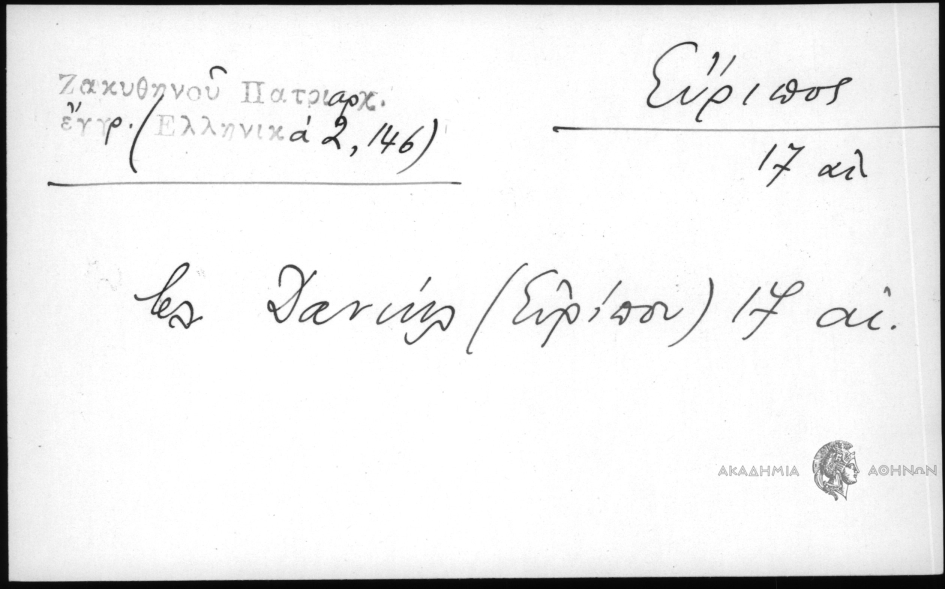 Ζακυθηνοῦ Πατριαρχ.
ἔγγρ. (Ἑλληνικά 2, 146)
Εὔριπος
17 αἰ
Δανιήλ (Εὐρίπου) 17 αἰ.
ΑΚΑΔΗΜΙΑ ΑΘΗΝΩΝ